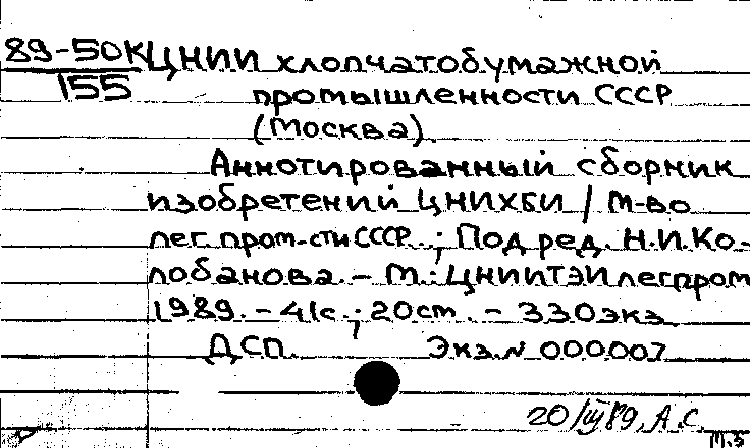 89-50к ЦНИИ хлопчатобумажной
155
промышленности СССР
(Москва).
Аннотированный сборник
изобретений ЦНИХБИ / М-во
лег. пром-сти СССР ; Под ред. Н.И.Ко-
лобанова. - М.: ЦНИИТЭИлегпром
1989. - 41с. ; 20см. - 330экз.
ДСП. Экз.N 000007
20/III 89, А.С.